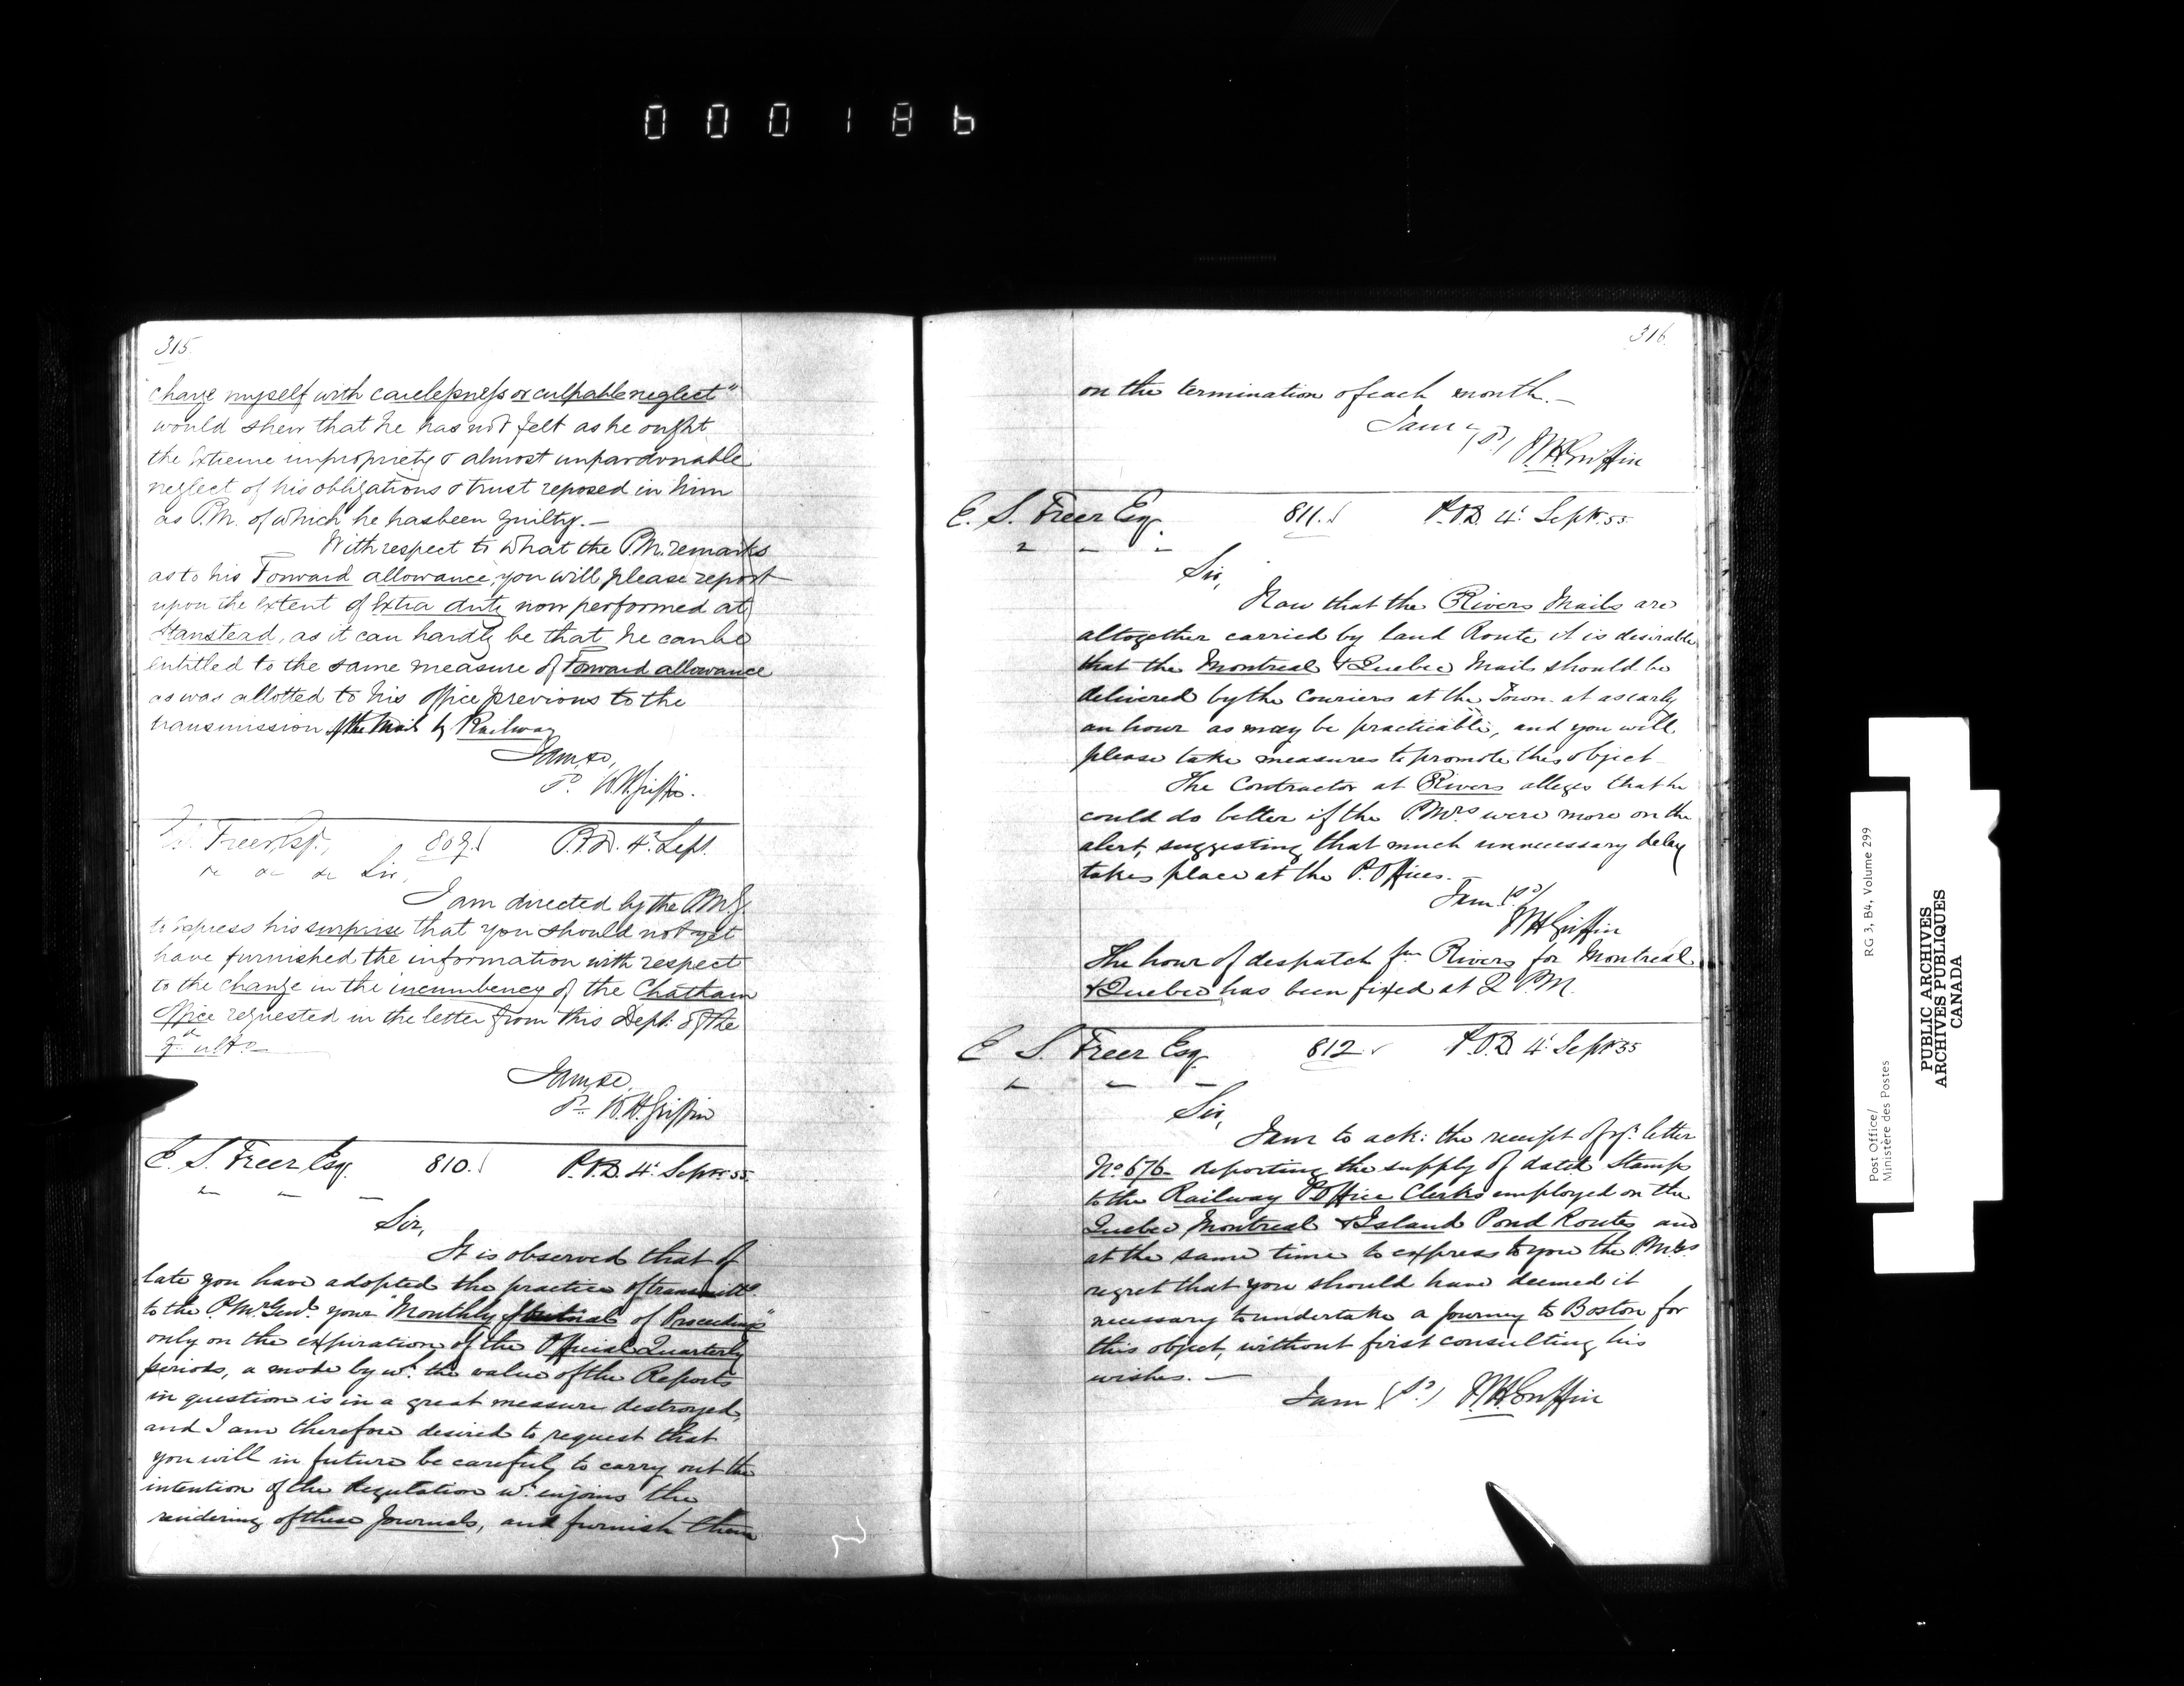 000186
315
charge myself with carelessness or culpable neglect"
would shew that he has not felt as he ought
the extreme impropriety & almost unpardonable
neglect of his obligations & trust reposed in him
as P.M. of which he has been guilty.—
With respect to what the P.M. remarks
as to his Forward allowance, you will please report
upon the extent of extra duty now performed at
Stanstead, as it can hardly be that he can be
entitled to the same measure of Forward allowance
as was allotted to his office previous to the
transmission of the Mail by Railway
I am, &c,
W.H. Griffin.
Freer Esq., 809. P.O.D. 4. Sept.
Sir,
I am directed by the P.M.G.
to express his surprise that you should not yet
have furnished the information with respect
to the change in the incumbency of the Chatham
Office requested in the letter from this Dept. of the
ulto—
I am, &c,
W.H. Griffin
E. S. Freer Esq. 810. P.O.D. 4. Septr. 55.
Sir,
It is observed that of
late you have adopted the practice of
to the P.M. Genl. your "Monthly Journals of Proceedings"
only on the expiration of the Official Quarterly
periods, a mode by wh. the value of the Reports
in question is in a great measure destroyed,
and I am therefore desired to request that
you will in future be careful to carry out the
intention of the Regulation wh. enjoins the
rendering of these Journals, and furnish them
316.
on the termination of each month.—
I am
W.H. Griffin
E. S. Freer Esq. 811. P.O.D. 4. Septr. 55.
Sir,
Now that the 3 Rivers Mails are
altogether carried by land Route it is desirable
that the Montreal & Quebec Mails should be
delivered by the Couriers at the Town at as early
an hour as may be practicable, and you will
please take measures to promote this object—
The Contractor at 3 Rivers alleges that he
could do better if the P.Mrs were more on the
alert, suggesting that much unnecessary delay
takes place at the P. Offices.—
I am
W.H. Griffin
The hour of despatch fm 3 Rivers for Montreal
& Quebec has been fixed at 2 P.M.
E. S. Freer Esq. 812. P.O.D. 4. Septr 55
Sir,
I am to ack: the receipt of yr. letter
No. 676— reporting the supply of dated Stamps
to the Railway P. Office Clerks employed on the
Quebec, Montreal & Island Pond Routes and
at the same time to express to you the P.M.G's
regret that you should have deemed it
necessary to undertake a journey to Boston for
this object, without first consulting his
wishes.—
I am W.H. Griffin
Post Office/
Ministère des Postes
RG 3, B4, Volume 299
PUBLIC ARCHIVES
ARCHIVES PUBLIQUES
CANADA